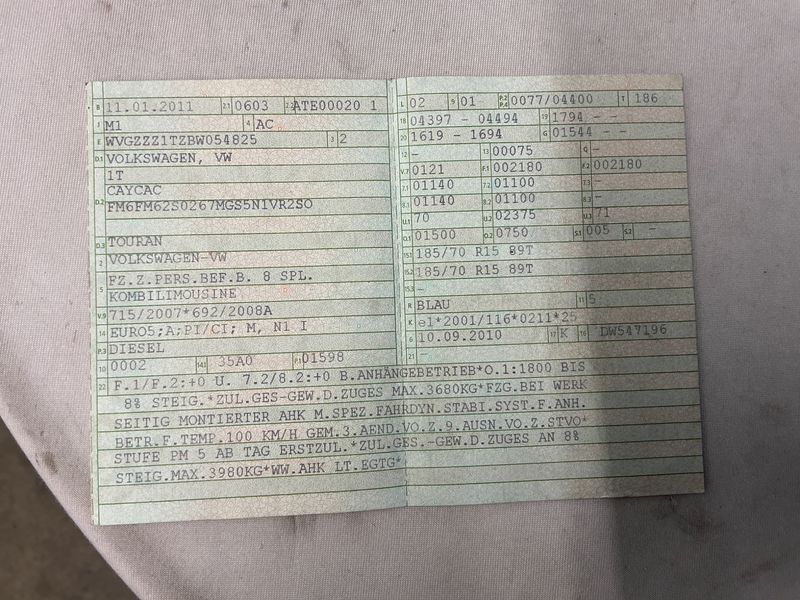 B 11.01.2011 2.1 0603 2.2 ATE00020 1
J M1 4 AC
E WVGZZZ1TZBW054825 3 2
D.1 VOLKSWAGEN, VW
1T
D.2 CAYCAC
FM6FM62S0267MGS5N1VR2SO
D.3 TOURAN
2 VOLKSWAGEN-VW
5 FZ.Z.PERS.BEF.B. 8 SPL.
KOMBILIMOUSINE
V.9 715/2007*692/2008A
14 EURO5;A;PI/CI; M, N1 I
P.3 DIESEL
10 0002 14.1 35A0 P.1 01598
L 02 9 01 P.2 P.4 0077/04400 T 186
18 04397 - 04494 19 1794 - -
20 1619 - 1694 G 01544 - -
12 - 13 00075 Q -
V.7 0121 F.1 002180 F.2 002180
7.1 01140 7.2 01100 7.3 -
8.1 01140 8.2 01100 8.3 -
U.1 70 U.2 02375 U.3 71
O.1 01500 O.2 0750 S.1 005 S.2 -
15.1 185/70 R15 89T
15.2 185/70 R15 89T
15.3 -
R BLAU 11 5
K e1*2001/116*0211*25
6 10.09.2010 17 K 16 DW547196
21 -
22 F.1/F.2:+0 U. 7.2/8.2:+0 B.ANHÄNGEBETRIEB*O.1:1800 BIS
8% STEIG.*ZUL.GES-GEW.D.ZUGES MAX.3680KG*FZG.BEI WERK
SEITIG MONTIERTER AHK M.SPEZ.FAHRDYN.STABI.SYST.F.ANH.
BETR.F.TEMP.100 KM/H GEM.3.AEND.VO.Z.9.AUSN.VO.Z.STVO*
STUFE PM 5 AB TAG ERSTZUL.*ZUL.GES.-GEW.D.ZUGES AN 8%
STEIG.MAX.3980KG*WW.AHK LT.EGTG*